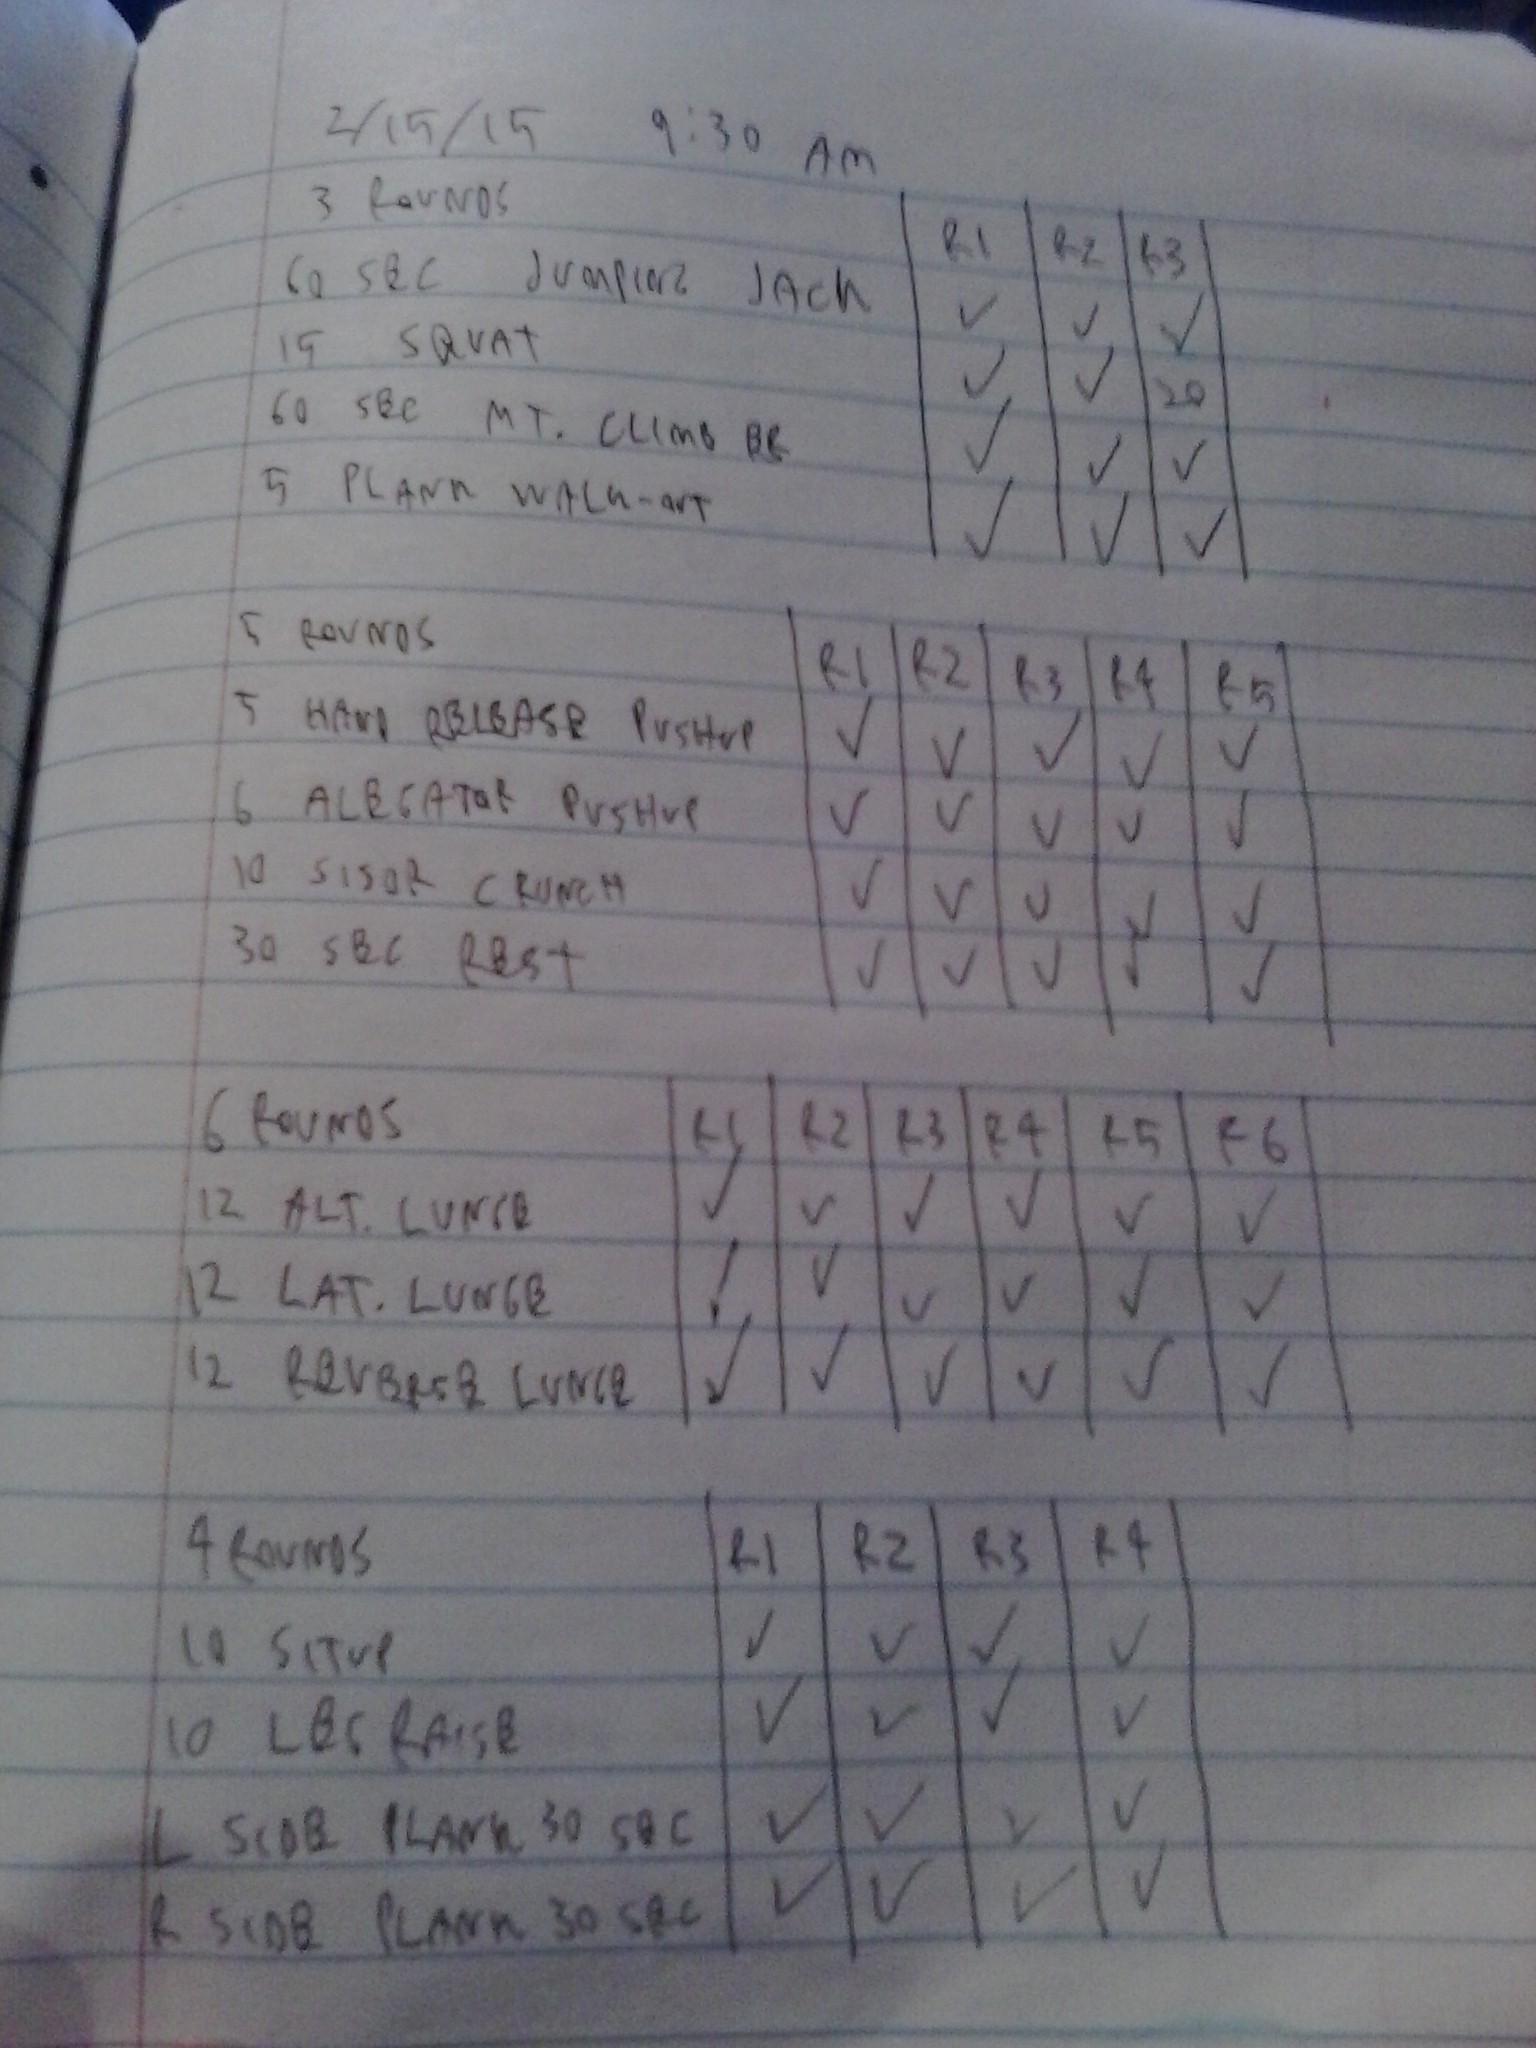 2/15/15 9:30 AM
3 ROUNDS R1 R2 R3
60 SEC JUMPING JACK ✓ ✓ ✓
15 SQUAT ✓ ✓ 20
60 SEC MT. CLIMB ER ✓ ✓ ✓
5 PLANK WALK-OUT ✓ ✓ ✓
5 ROUNDS R1 R2 R3 R4 R5
5 HAND RELEASE PUSHUP ✓ ✓ ✓ ✓ ✓
6 ALEGATOR PUSHUP ✓ ✓ ✓ ✓ ✓
10 SISOR CRUNCH ✓ ✓ ✓ ✓ ✓
30 SEC REST ✓ ✓ ✓ ✓ ✓
6 ROUNDS R1 R2 R3 R4 R5 R6
12 ALT. LUNGE ✓ ✓ ✓ ✓ ✓ ✓
12 LAT. LUNGE ✓ ✓ ✓ ✓ ✓ ✓
12 REVERSE LUNGE ✓ ✓ ✓ ✓ ✓ ✓
4 ROUNDS R1 R2 R3 R4
10 SITUP ✓ ✓ ✓ ✓
10 LEG RAISE ✓ ✓ ✓ ✓
L SIDE PLANK 30 SEC ✓ ✓ ✓ ✓
R SIDE PLANK 30 SEC ✓ ✓ ✓ ✓